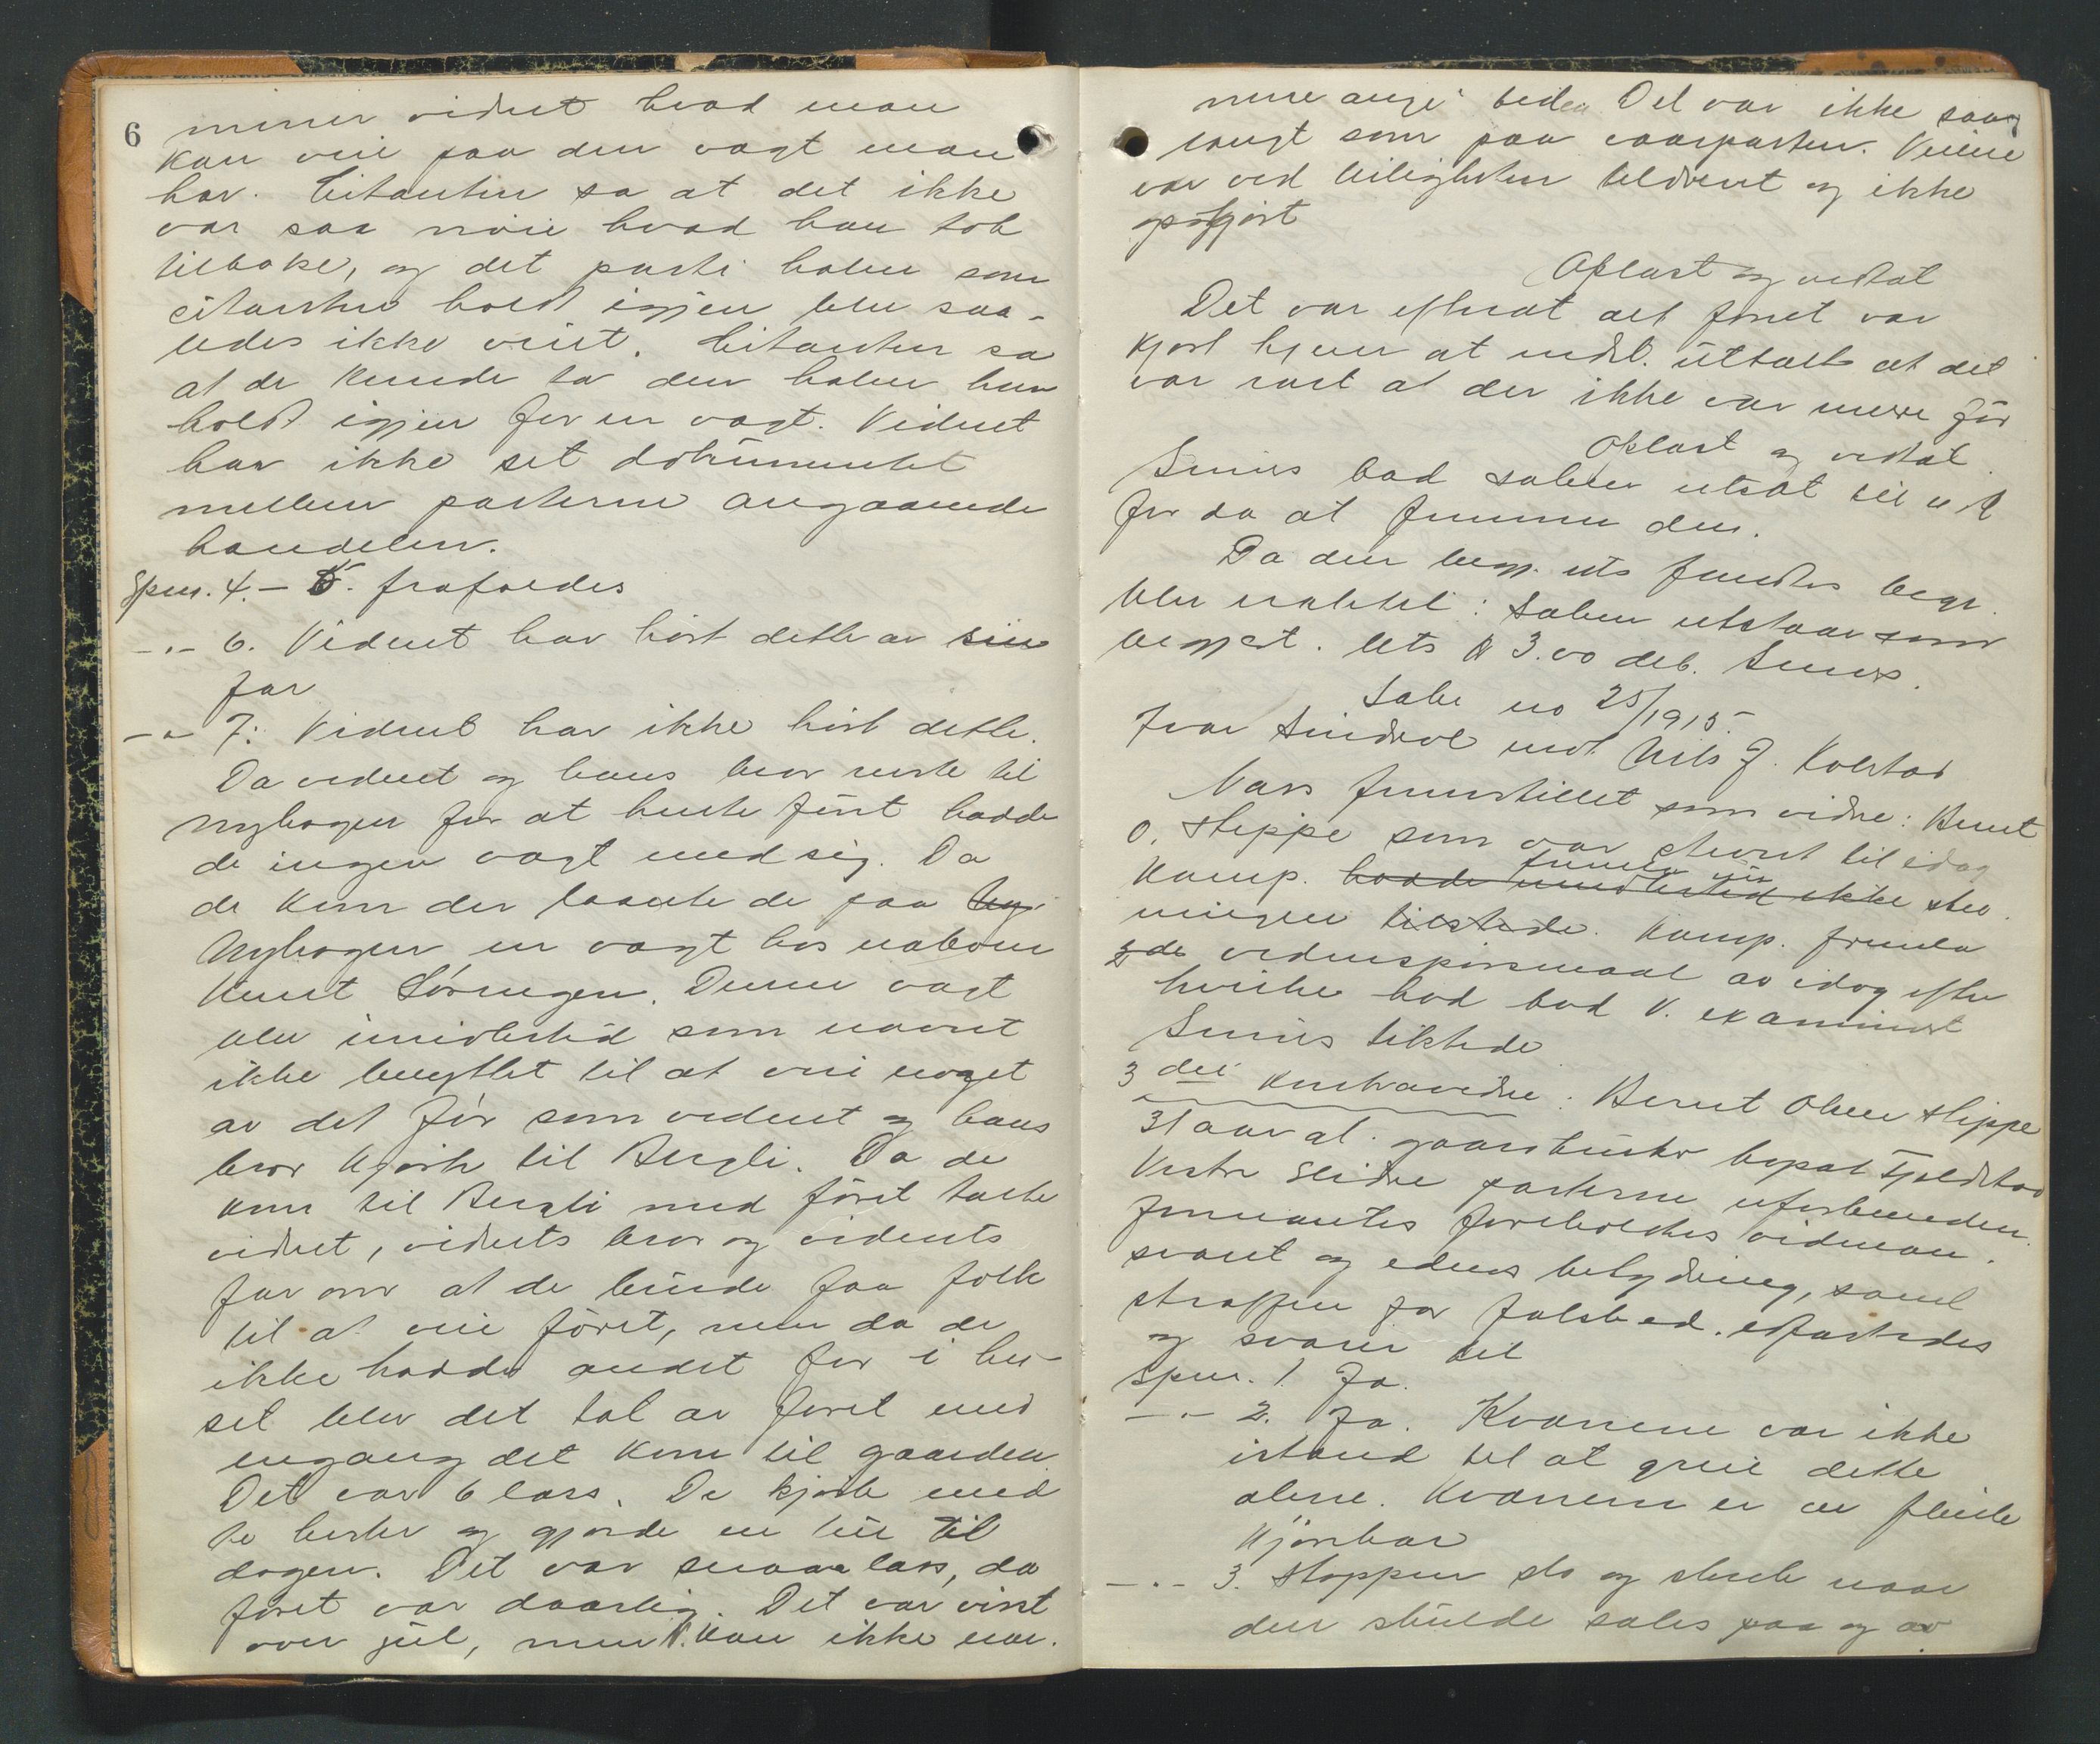 6
minnes vidnet hvad man
kan veie paa den vægt man
har. Citanten sa at det ikke
var saa nøie hvad han tok
tilbake, og det parti halm som
citanten holdt igjen blev saa-
ledes ikke veiet. Citanten sa
at de kunde ta den halm han
holdt igjen for en vægt. Vidnet
har ikke set dokumentet
mellem parterne angaaende
handelen.
Spm. 4. - 5. frafaldes
-"- 6. Vidnet har hørt dette av sin
far
-"- 7. Vidnet har ikke hørt dette.
Da vidnet og hans bror reiste til
Nyhagen for at hente fôret hadde
de ingen vægt med sig. Da
de kom der laante de paa
Nyhagen en vægt hos naboen
Knut Søvengen. Denne vægt
blev imidlertid som nævnt
ikke benyttet til at veie noget
av det fôr som vidnet og hans
bror kjørte til Bergli. Da de
kom til Bergli med fôret talte
vidnet, vidnets bror og vidnets
far om at de burde faa folk
til at veie fôret, men da de
ikke hadde andet for i hu-
set blev det tat av fôret med
engang det kom til gaarden.
Det var 6 lass. De kjørte med
to hester og gjorde en tur til
dagen. Det var smaa lass, da
føret var daarlig. Det var vist
over jul, men V. kan ikke nær-
mere angi tiden. Det var ikke saa
langt som paa vaarparten. Veiene
var ved leiligheten tildrevet og ikke
opkjørt
Oplæst og vedtat
Det var efterat alt fôret var
kjørt hjem at indst. uttalte at det
var rart at der ikke var mere fôr
Oplæst og vedtat.
Smes bad saken utsat til
for da at fremme den.
Da den begj. uts fandtes begr.
blev avsagt: Saken utstaar som
begjært. Uts kr 3.00 deb. Smes.
Sak no 25/1915.
Ivar Sindrol mot Nils J. Kolstad
Næss fremstillet som vidne: Bernt
O. Steppe som var stevnt til idag
Komp. hadde imidlertid ikke stev-
ningen tilstede. Komp. fremla
vidnespørsmaal av idag efter
hvilke han bad V. examinert
Smes tilstede
3 die kontravidne: Bernt Olsen Steppe
31 aar al. gaardbruker bopæl Fjeldstad
Vestre Slidre parterne uforbeneden.
Formantes foreholdtes vidnean-
svaret og edens betydning, samt
straffen for falsk ed. edfæstedes
og svarer til
Spm. 1. Ja.
-"- 2. Ja. Kvannem var ikke
istand til at greie dette
alene. Kvannem er en flink
kjørekar
-"- 3. Hoppen slo og sterk naar
den skulde sales paa og av